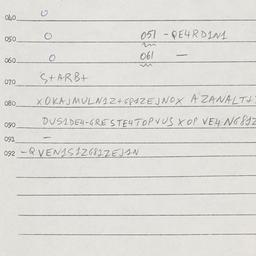 040 0
050 0 051 - QE4RD1N1
060 0 061 —
070 S+ARB+
080 XOKAJMULN1Z+681ZEJNOX AZANALT+
090 DUS1DE4-6RESTE4TOPVUS XOP VE4N681Z
091 —
092 -QVEN1S1Z681ZEJ1N